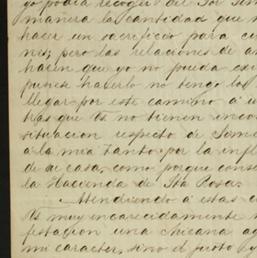 yo podia recoger del Sor Sim
manera la cantidad que
hacer un sacrificio para cu
nes; pero las relaciones de a
hacen que yo no pueda exi
puense hacerlo no tengo los
llegar por este camino á u
tras que Vs no tienen incon
situacion respecto de Sime
á la mia tanto por la infl
de su casa, como porque cons
la Hacienda de Sta Rosa.
Atendiendo á estas c
Vs muy encarecidamente
festacion una chicana ag
mi caracter, sino el justo y